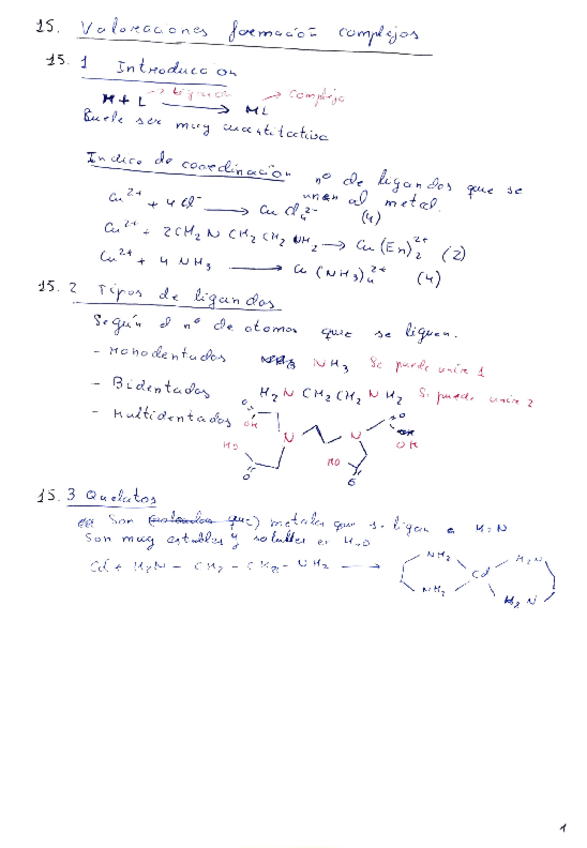 15. Valoraciones formación complejos
15.1 Introduccion
→ Ligando → Complejo
M + L → ML
Suele ser muy cuantitativa
Indice de coordinación nº de ligandos que se unen al metal.
Cu²⁺ + 4 Cl⁻ → Cu Cl₄²⁻ (4)
Cu²⁺ + 2 CH₂ N CH₂ CH₂ NH₂ → Cu (En)₂²⁺ (2)
Cu²⁺ + 4 NH₃ → Cu (NH₃)₄²⁺ (4)
15.2 Tipos de ligandos
Según el nº de atomos que se liguen.
- Monodentados NH₃ Se puede unir x 1
- Bidentados H₂N CH₂ CH₂ N H₂ Se puede unir x 2
- Multidentados
O OH N HO O N O OH HO O
15.3 Quelatos
Son metales que se ligan a
Son muy estables y solubles en H₂O
Cd + H₂N - CH₂ - CH₂ - NH₂ →
NH₂ H₂N
Cd
NH₂ H₂N
1